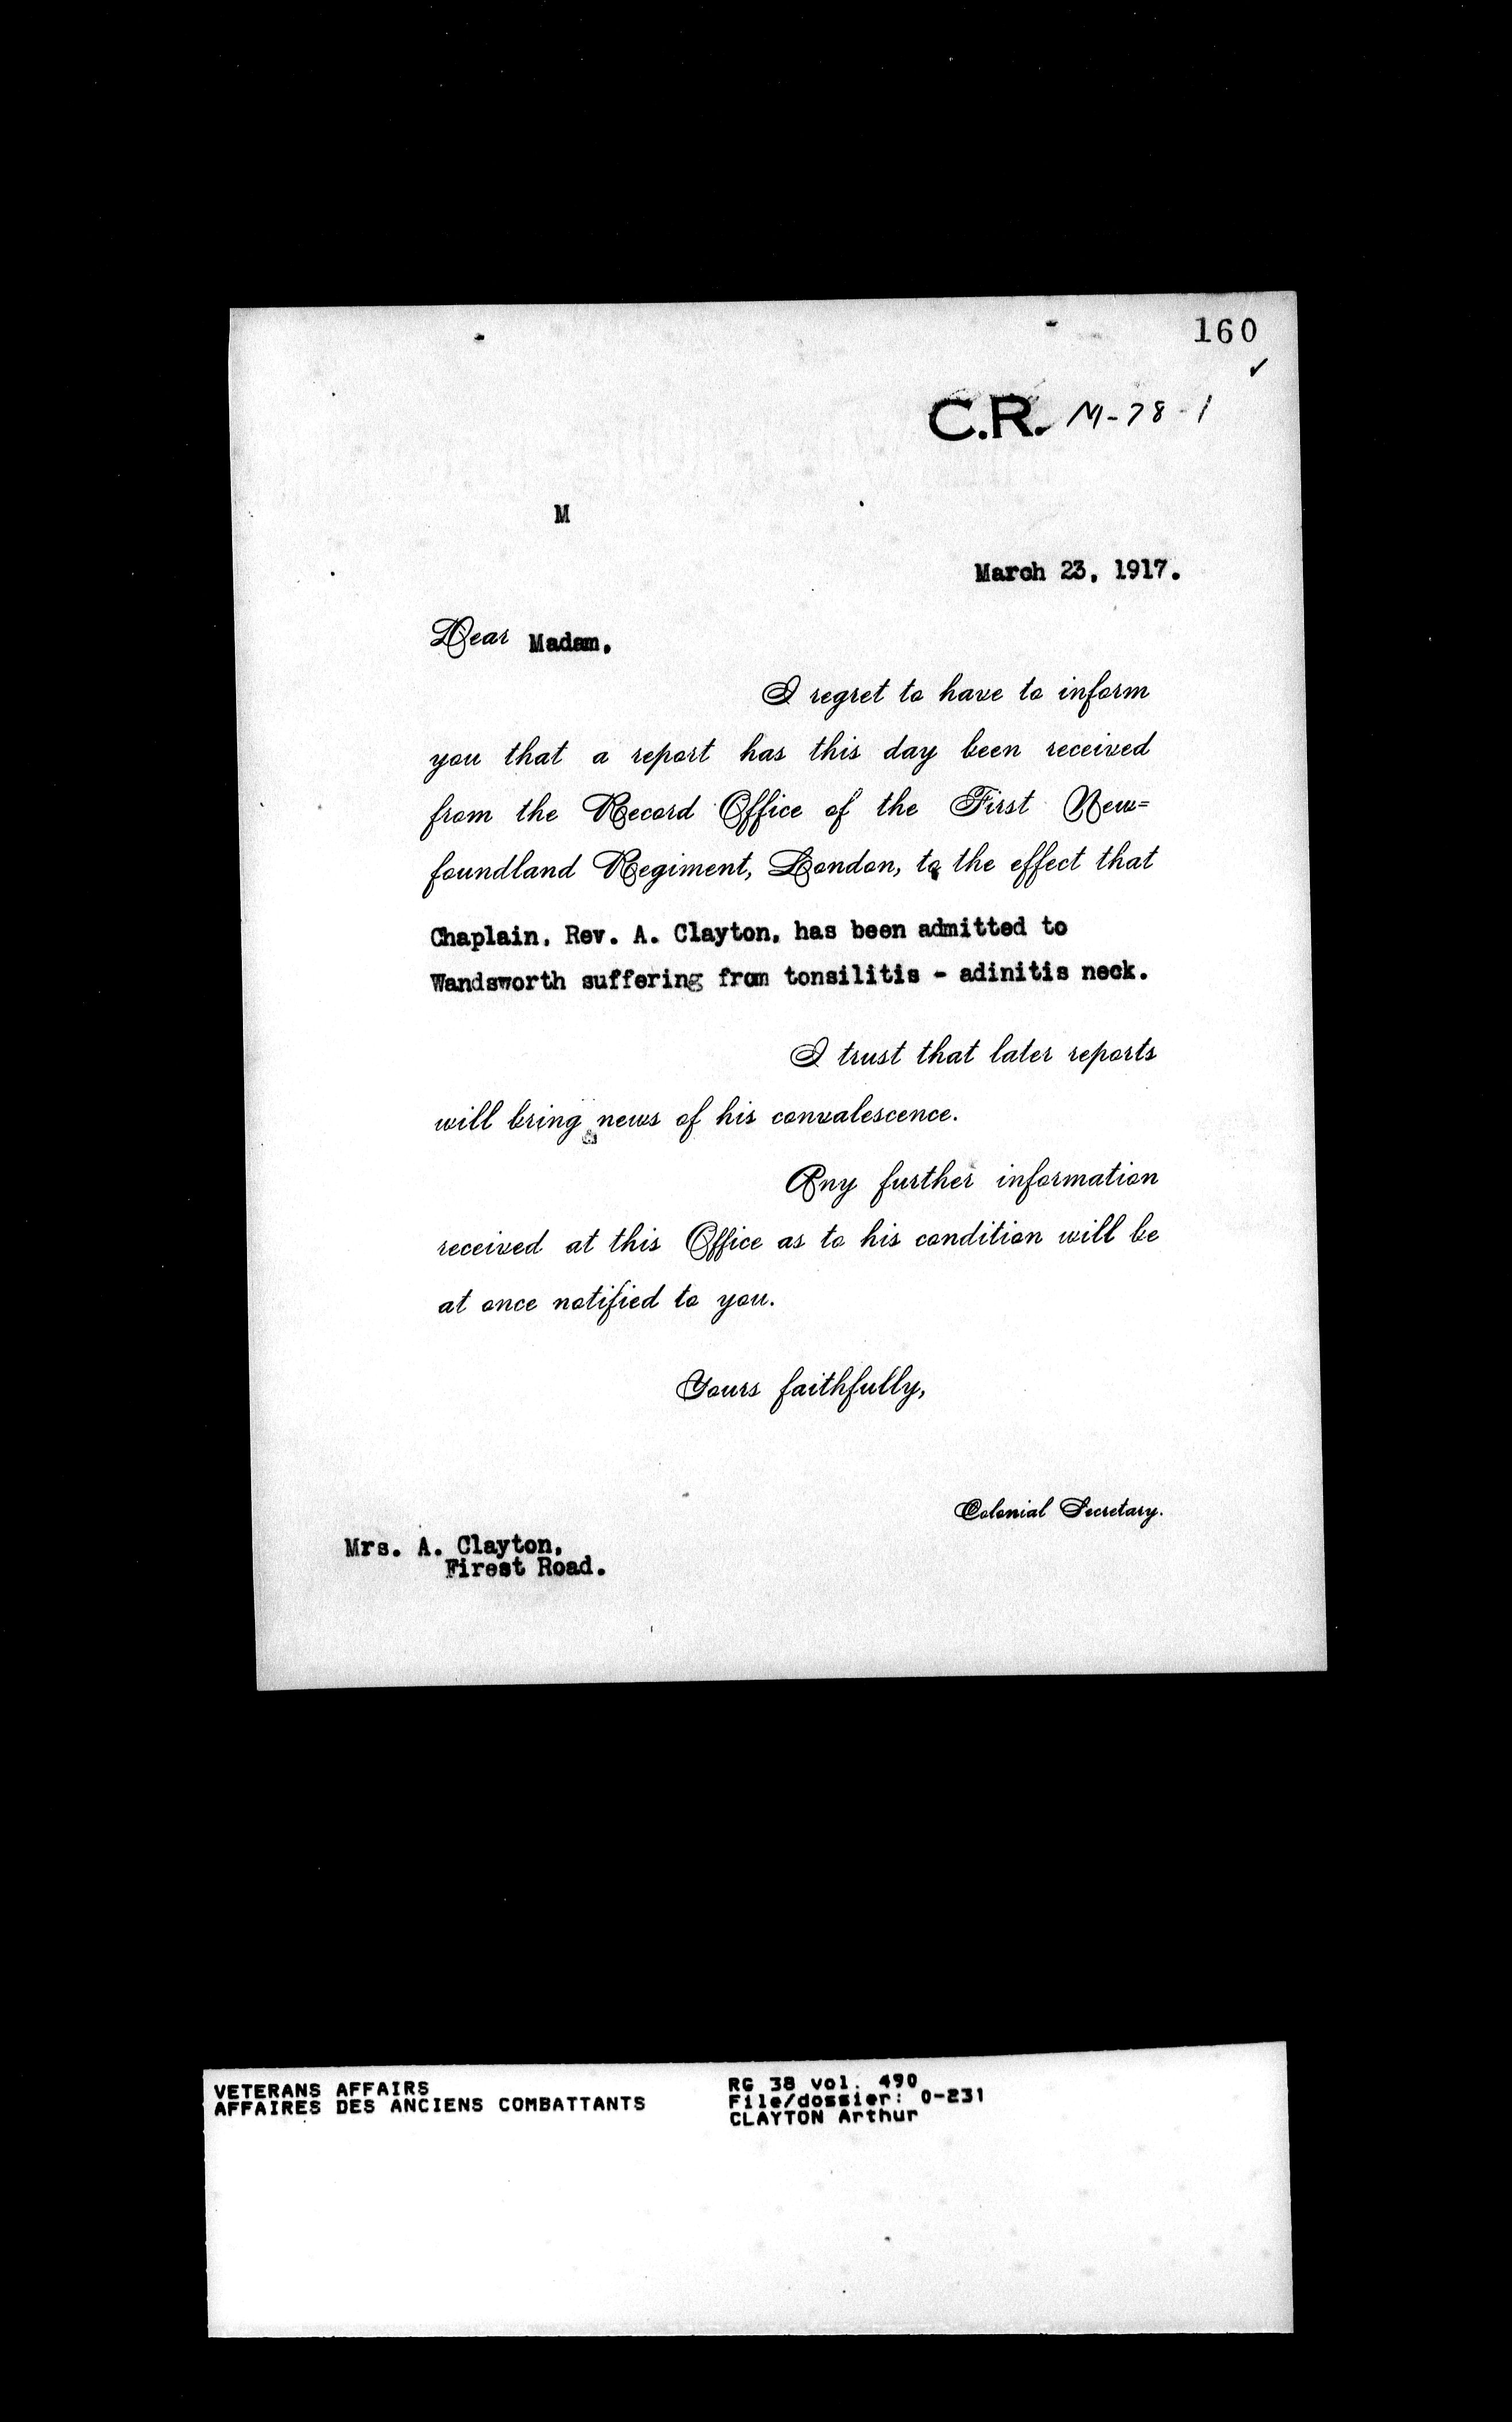 160
✓
C.R. M-78-1
M
March 23, 1917.
Dear Madam,
I regret to have to inform
you that a report has this day been received
from the Record Office of the First New=
foundland Regiment, London, to the effect that
Chaplain, Rev. A. Clayton, has been admitted to
Wandsworth suffering from tonsilitis - adinitis neck.
I trust that later reports
will bring news of his convalescence.
Any further information
received at this Office as to his condition will be
at once notified to you.
Yours faithfully,
Colonial Secretary.
Mrs. A. Clayton,
Firest Road.
VETERANS AFFAIRS
AFFAIRES DES ANCIENS COMBATTANTS
RG 38 vol. 490
File/dossier: 0-231
CLAYTON Arthur